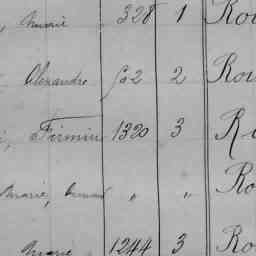 , Marie 328 1 Rou
Alexandre 602 2 Rou
, Firmin 1320 3 R
Marie, " " Ro
Marie 1244 3 Ro